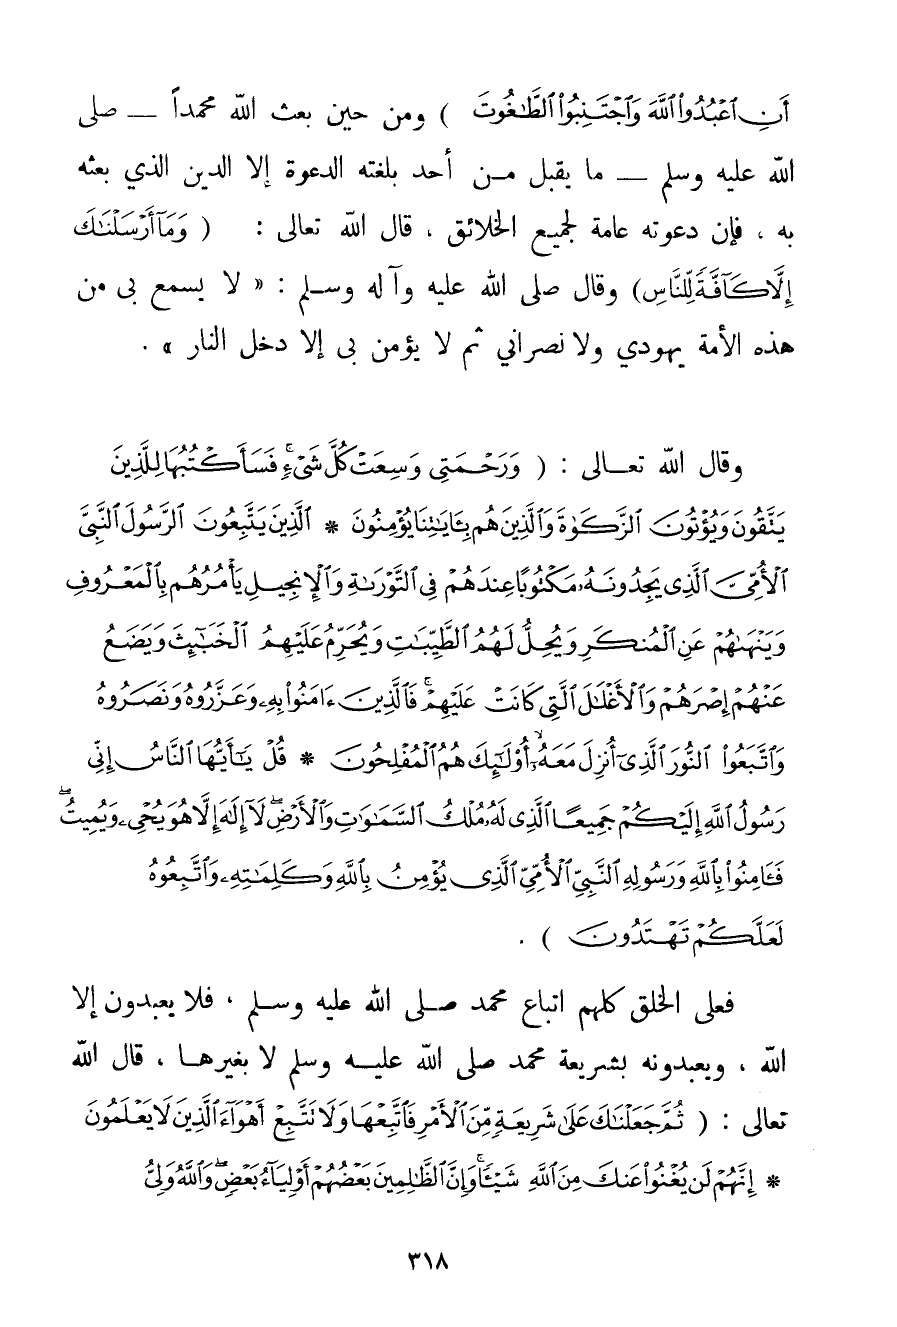 أَنِ ٱعْبُدُوا۟ ٱللَّهَ وَٱجْتَنِبُوا۟ ٱلطَّٰغُوتَ ) ومن حين بعث الله محمداً — صلى
الله عليه وسلم — ما يقبل من أحد بلغته الدعوة إلا الدين الذي بعثه
به ، فإن دعوته عامة لجميع الخلائق ، قال الله تعالى : ( وَمَآ أَرْسَلْنَٰكَ
إِلَّا كَآفَّةً لِّلنَّاسِ) وقال صلى الله عليه وآله وسلم : « لا يسمع بى من
هذه الأمة يهودي ولا نصراني ثم لا يؤمن بى إلا دخل النار » .
وقال الله تعالى : ( وَرَحْمَتِى وَسِعَتْ كُلَّ شَىْءٍۚ فَسَأَكْتُبُهَا لِلَّذِينَ
يَتَّقُونَ وَيُؤْتُونَ ٱلزَّكَوٰةَ وَٱلَّذِينَ هُم بِـَٔايَٰتِنَا يُؤْمِنُونَ * ٱلَّذِينَ يَتَّبِعُونَ ٱلرَّسُولَ ٱلنَّبِىَّ
ٱلْأُمِّىَّ ٱلَّذِى يَجِدُونَهُۥ مَكْتُوبًا عِندَهُمْ فِى ٱلتَّوْرَىٰةِ وَٱلْإِنجِيلِ يَأْمُرُهُم بِٱلْمَعْرُوفِ
وَيَنْهَىٰهُمْ عَنِ ٱلْمُنكَرِ وَيُحِلُّ لَهُمُ ٱلطَّيِّبَٰتِ وَيُحَرِّمُ عَلَيْهِمُ ٱلْخَبَٰٓئِثَ وَيَضَعُ
عَنْهُمْ إِصْرَهُمْ وَٱلْأَغْلَٰلَ ٱلَّتِى كَانَتْ عَلَيْهِمْۚ فَٱلَّذِينَ ءَامَنُوا۟ بِهِۦ وَعَزَّرُوهُ وَنَصَرُوهُ
وَٱتَّبَعُوا۟ ٱلنُّورَ ٱلَّذِىٓ أُنزِلَ مَعَهُۥٓۙ أُو۟لَٰٓئِكَ هُمُ ٱلْمُفْلِحُونَ * قُلْ يَٰٓأَيُّهَا ٱلنَّاسُ إِنِّى
رَسُولُ ٱللَّهِ إِلَيْكُمْ جَمِيعًا ٱلَّذِى لَهُۥ مُلْكُ ٱلسَّمَٰوَٰتِ وَٱلْأَرْضِۖ لَآ إِلَٰهَ إِلَّا هُوَ يُحْىِۦ وَيُمِيتُۖ
فَـَٔامِنُوا۟ بِٱللَّهِ وَرَسُولِهِ ٱلنَّبِىِّ ٱلْأُمِّىِّ ٱلَّذِى يُؤْمِنُ بِٱللَّهِ وَكَلِمَٰتِهِۦ وَٱتَّبِعُوهُ
لَعَلَّكُمْ تَهْتَدُونَ ) .
فعلى الخلق كلهم اتباع محمد صلى الله عليه وسلم ، فلا يعبدون إلا
الله ، ويعبدونه بشريعة محمد صلى الله عليه وسلم لا بغيرها ، قال الله
تعالى : ( ثُمَّ جَعَلْنَٰكَ عَلَىٰ شَرِيعَةٍ مِّنَ ٱلْأَمْرِ فَٱتَّبِعْهَا وَلَا تَتَّبِعْ أَهْوَآءَ ٱلَّذِينَ لَا يَعْلَمُونَ
* إِنَّهُمْ لَن يُغْنُوا۟ عَنكَ مِنَ ٱللَّهِ شَيْـًٔاۚ وَإِنَّ ٱلظَّٰلِمِينَ بَعْضُهُمْ أَوْلِيَآءُ بَعْضٍۖ وَٱللَّهُ وَلِىُّ
٣١٨